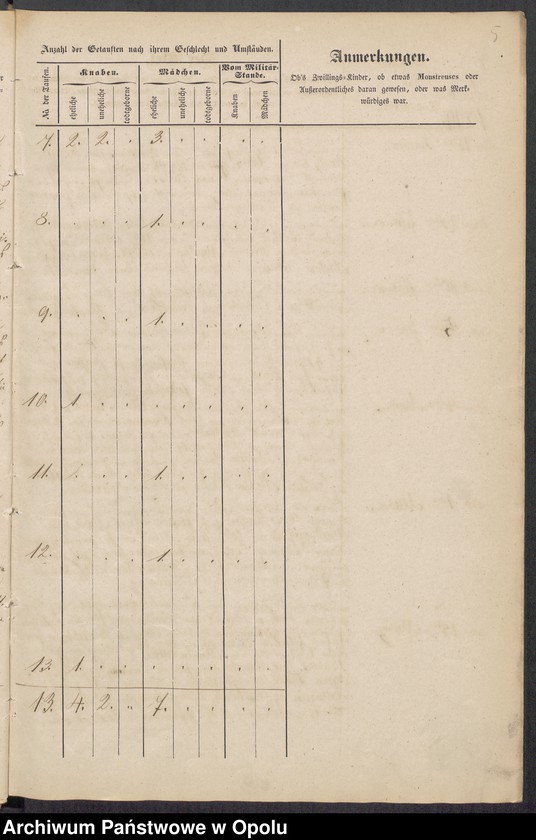 5
Anzahl der Getauften nach ihrem Geschlecht und Umständen.
Anmerkungen.
Ob's Zwillings-Kinder, ob etwas Monstreuses oder
Außerordentliches daran gewesen, oder was Merk-
würdiges war.
№ der Taufen.
Knaben.
Mädchen.
Vom Militär-
Stande.
eheliche
uneheliche
todtgeborne
eheliche
uneheliche
todtgeborne
Knaben
Mädchen
7. 2. 2. . 3. . . . .
8. . . . 1. . . . .
9. . . . 1. . .. . .
10. 1 . . . . . . .
11. . . . 1. . . . .
12. . . . 1. . . . .
13. 1. . . . . . . .
13. 4. 2. „ 7. . . . .
Archiwum Państwowe w Opolu